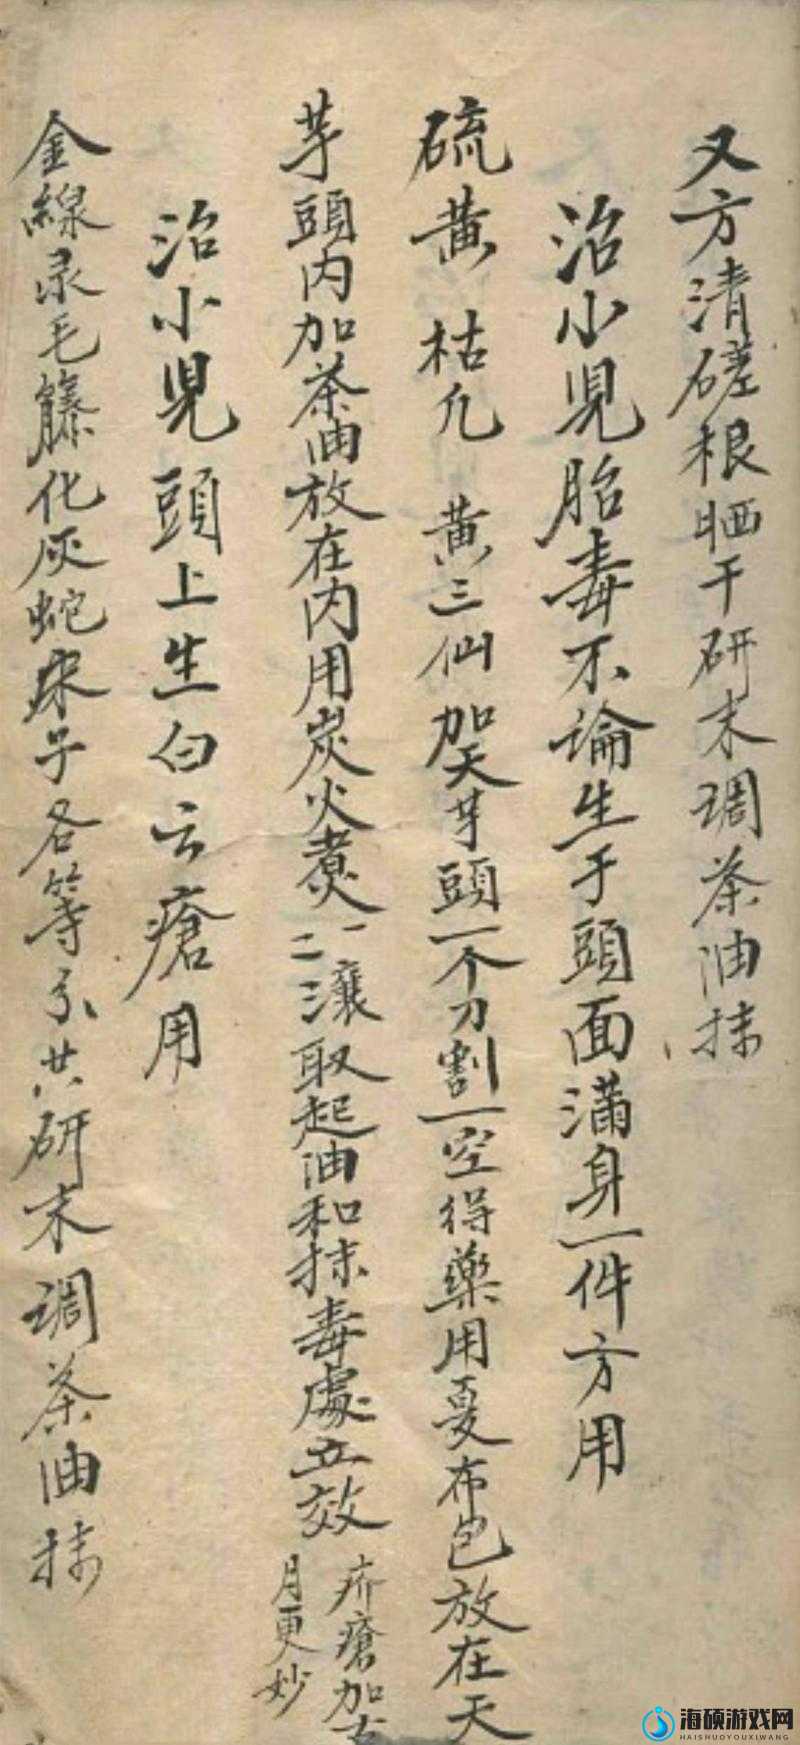 又方清磋根晒干研末调茶油抹
治小児胎毒不論生于頭面滿身一件方用
硫黄 枯凡 黄三仙 加天芋頭一个刀割一空得藥用夏布包放在天
芋頭内加茶油放在内用炭火煮一二三滾取起油和抹毒處立效
疥瘡加
月更妙
治小児頭上生白云瘡用
金線录毛籐化灰蛇床子各等分共研末调茶油抹
海硕游戏网
HAISHUOYOUXIWANG